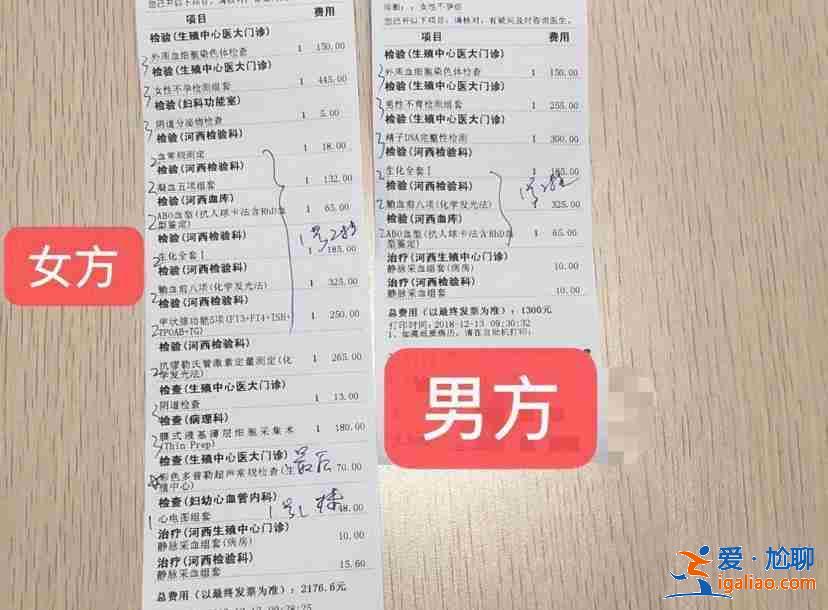 项目 费用
检验(生殖中心医大门诊)
外周血细胞染色体检查 1 150.00
检验(生殖中心医大门诊)
女性不孕检测组套 1 445.00
检验(妇科功能室)
阴道分泌物检查 1 5.00
检验(河西检验科)
血常规测定 1 18.00
检验(河西检验科)
凝血五项组套 1 132.00
检验(河西血库)
ABO血型(抗人球卡法含RhD血型鉴定) 1 65.00
检验(河西检验科)
生化全套Ⅰ 1 185.00
检验(河西检验科)
输血前八项(化学发光法) 1 325.00
检验(河西检验科)
甲状腺功能5项(FT3+FT4+TSH+TPOAB+TG) 1 250.00
检验(河西检验科)
抗缪勒氏管激素定量测定(化学发光法) 1 265.00
检查(生殖中心医大门诊)
阴道检查 1 13.00
检查(病理科)
膜式液基薄层细胞采集术(Thin Prep) 1 180.00
检查(生殖中心医大门诊)
彩色多普勒超声常规检查(生殖中心) 70.00
最后
检查(妇幼心血管内科)
心电图组套 48.00
治疗(河西生殖中心门诊)
静脉采血组套(病房) 10.00
治疗(河西检验科)
静脉采血组套 15.60
总费用(以最终发票为准)：2176.6元
女方
您已开以下项目，请核对，有疑问及时咨询医生。
项目 费用
检验(生殖中心医大门诊)
外周血细胞染色体检查 1 150.00
检验(生殖中心医大门诊)
男性不育检测组套 1 255.00
检验(生殖中心医大门诊)
精子DNA完整性检测 1 300.00
检验(河西检验科)
生化全套Ⅰ 1 185.00
检验(河西检验科)
输血前八项(化学发光法) 1 325.00
检验(河西血库)
ABO血型(抗人球卡法含RhD血型鉴定) 1 65.00
治疗(河西生殖中心门诊)
静脉采血组套(病房) 10.00
治疗(河西检验科)
静脉采血组套 10.00
总费用(以最终发票为准)：1300元
打印时间：2018-12-13 09:30:32
1、如需纸质病历，请在自助机打印；
男方
爱·尬聊
igaliao.com